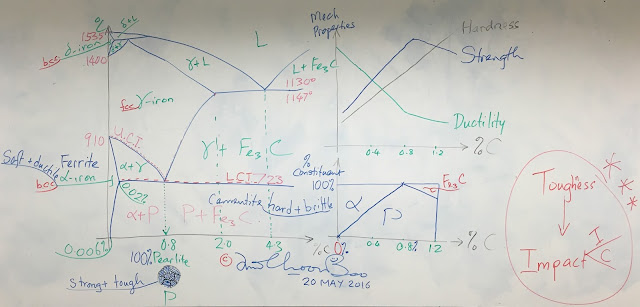 °C
δ+L
1535°
bcc δ-iron
δ+γ
1400
L
γ+L
L+Fe3C
1130°
1147°
fcc γ-iron
910
U.C.T.
γ+Fe3C
Soft+ductile Ferrite
bcc α-iron
α+γ
L.C.T./723
0.02%
Cementite hard+brittle
α+P
P+Fe3C
0.006%
0.8
2.0
4.3
%C
100% Pearlite
Strong+tough
P
©
20 MAY 2016
Mech
Properties
Hardness
Strength
Ductility
0.4
0.8
1.2
%C
%
Constituent
100%
Fe3C
α
P
0%
0.4
0.8%
1.2
%C
Toughess
Impact
I
C